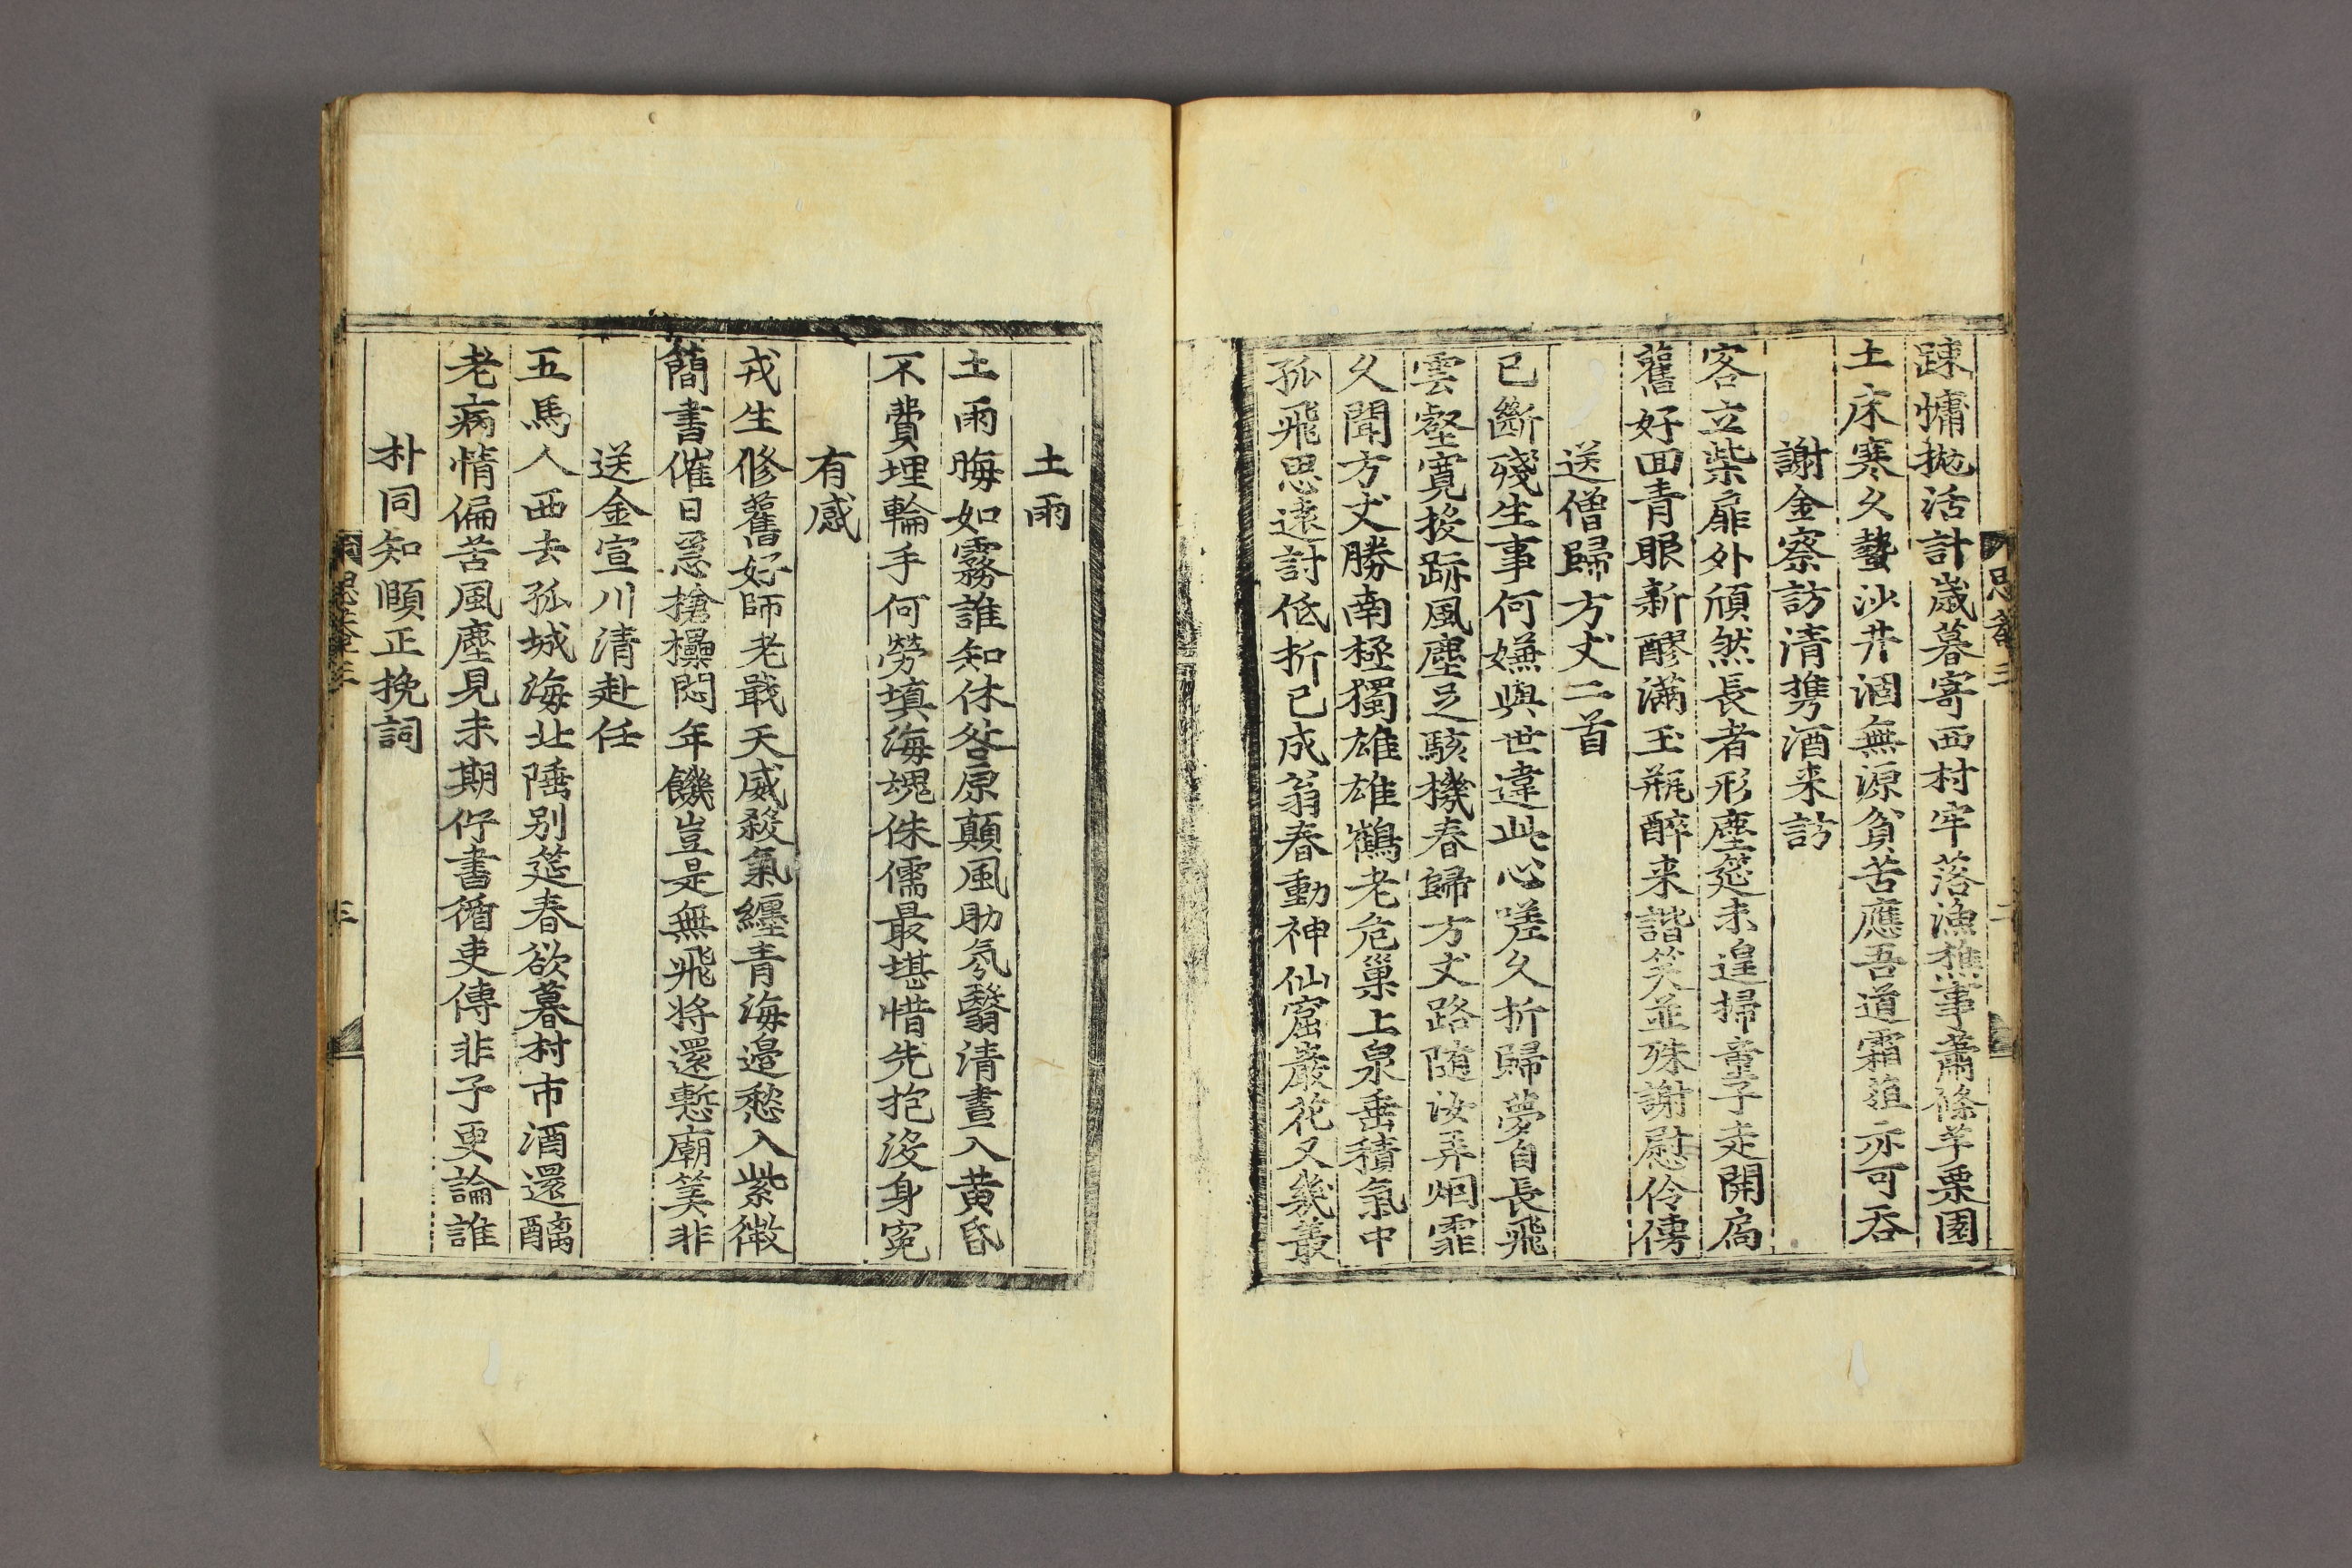 踈慵抛活計歲暮寄西村牢落漁樵事蕭條芋栗園
土床寒久蟄沙井涸無源貧苦應吾道霜菹亦可吞
謝金察訪清携酒来訪
客立柴扉外頎然長者形塵筵未遑掃童子走開扃
舊好回青眼新醪滿玉瓶醉来諧笑並殊謝慰伶俜
送僧歸方丈二首
已斷殘生事何嫌與世違此心嗟久折歸夢自長飛
雲壑寬投跡風塵足駭機春歸方丈路随汝弄烟霏
久聞方丈勝南極獨雄雄鶴老危巢上泉垂積氣中
孤飛思遠討低折已成翁春動神仙窟巖花又幾叢
土雨
土雨晦如霧誰知休咎原顛風助氛翳清晝入黄昏
不費埋輪手何勞填海魂侏儒最堪惜先抱没身寃
有感
戎生修舊好師老戢天威殺氣纏青海邉愁入紫微
簡書催日惡搶攘悶年饑豈是無飛将還慙廟筭非
送金宣川清赴任
五馬人西去孤城海北陲别筵春欲暮村市酒還醨
老病情偏苦風塵見未期佇書循吏傳非子更論誰
朴同知頥正挽詞
三